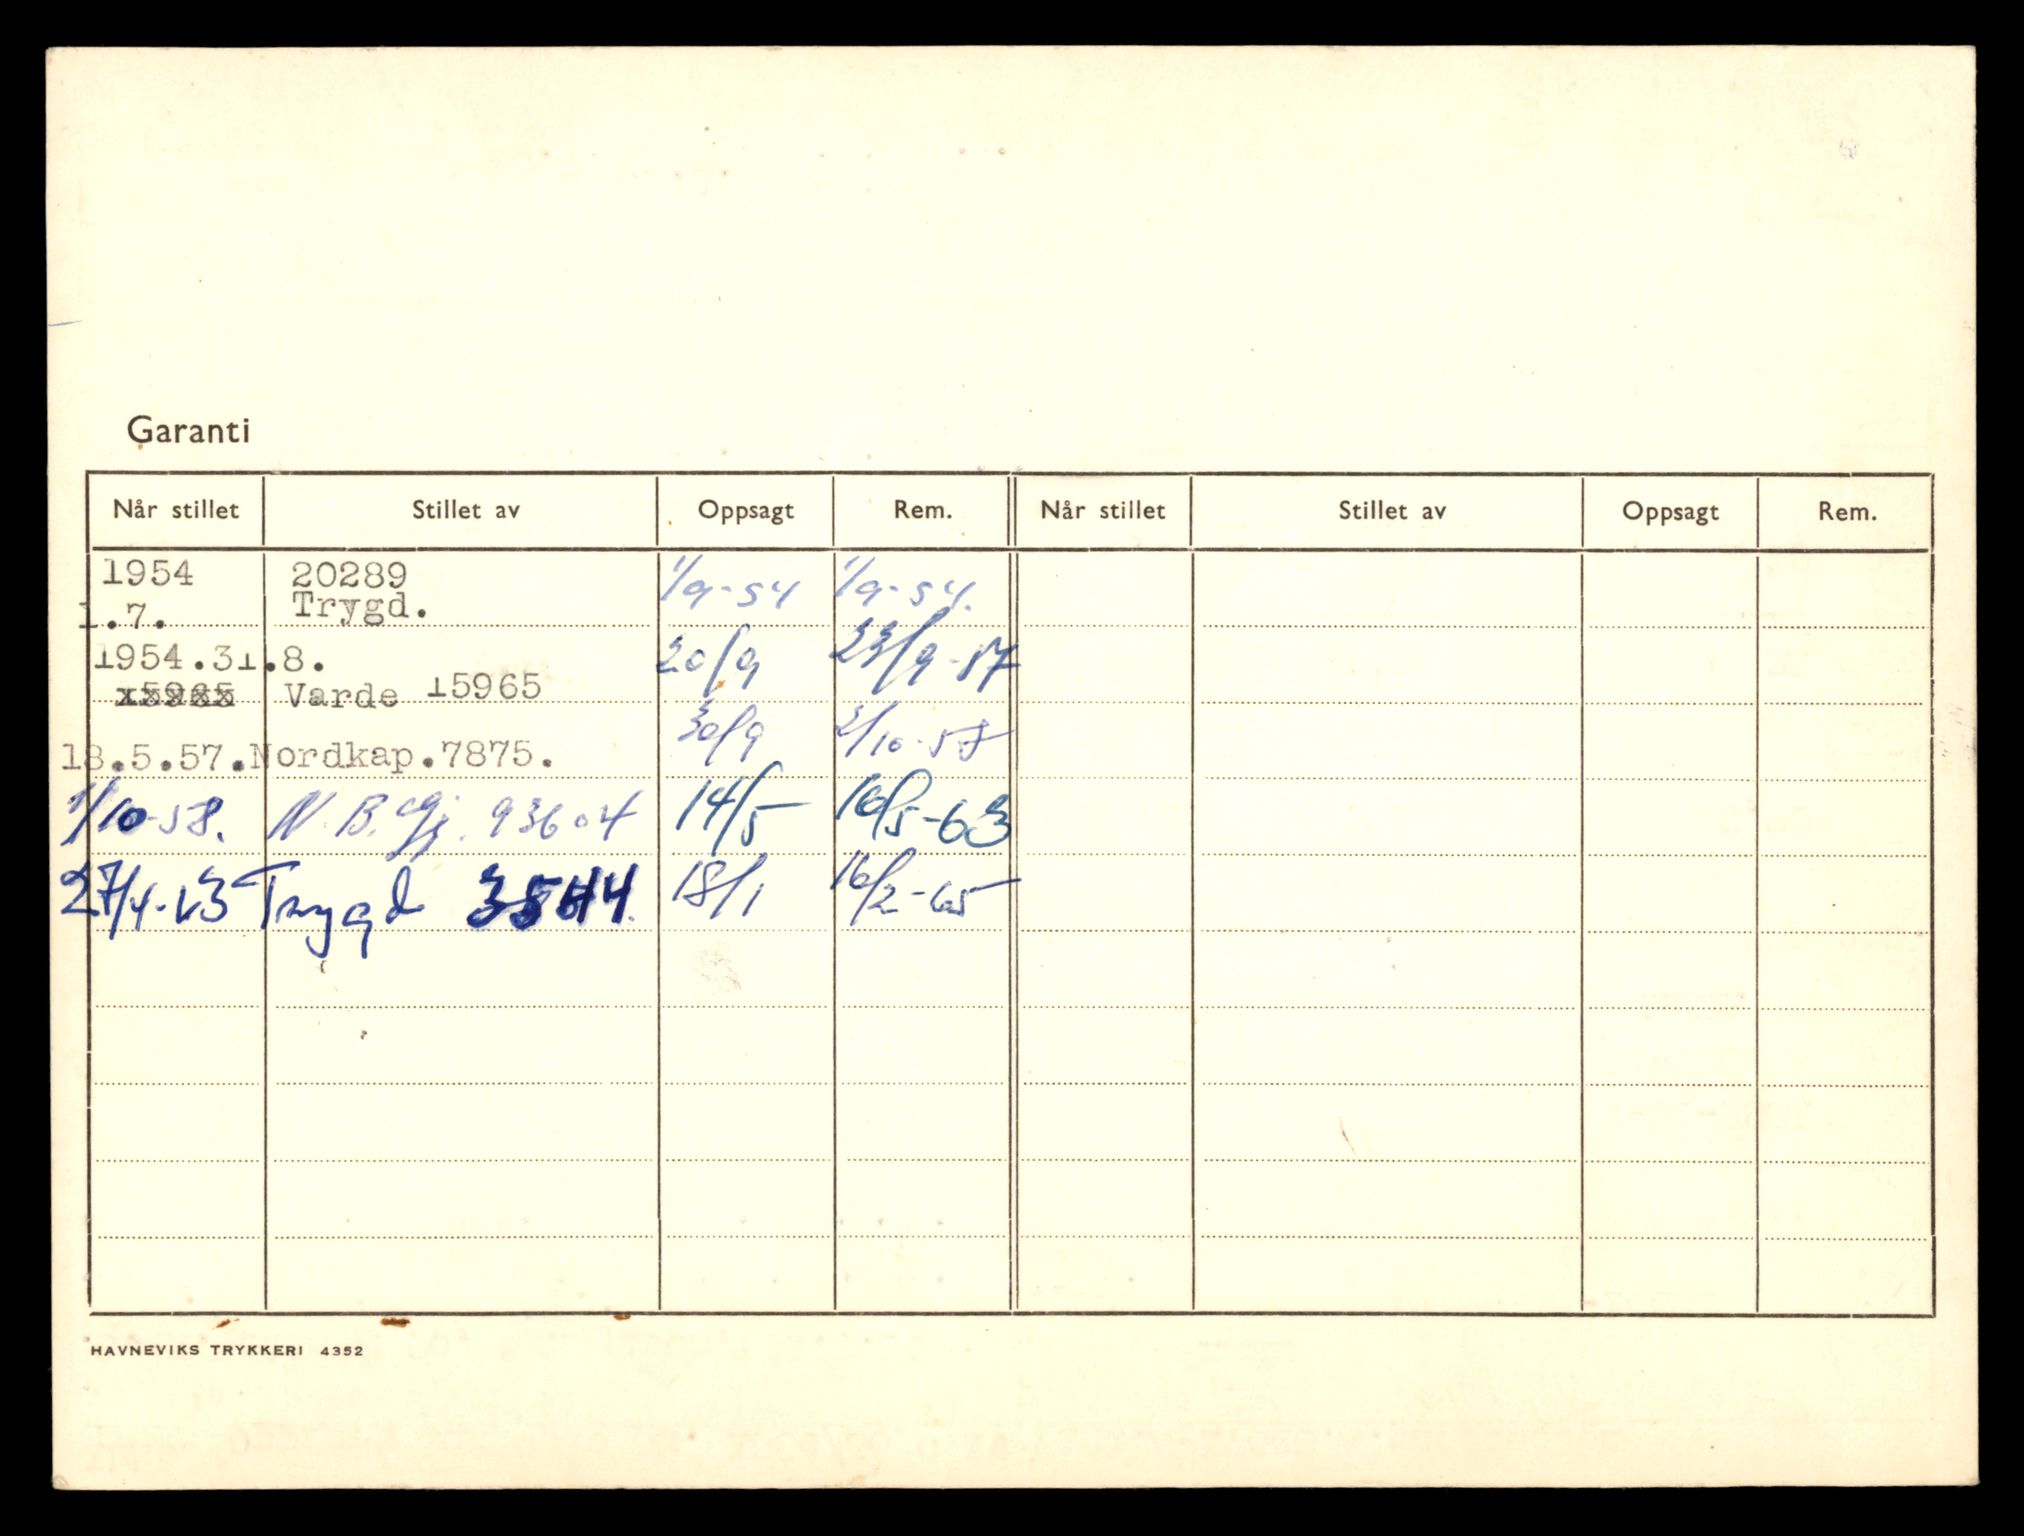 Garanti
Når stillet Stillet av Oppsagt Rem. Når stillet Stillet av Oppsagt Rem.
1954 20289 1/9-54 1/9-54.
1.7. Trygd.
1954.31.8. 20/9 23/9-57
x5965 Varde 15965
18.5.57.Nordkap.7875. 30/9 2/10-58
1/10-58. N.B.Gj. 93604 14/5 16/5-63
27/4-63 Trygd 3544. 18/1 16/2-65
HAVNEVIKS TRYKKERI 4352